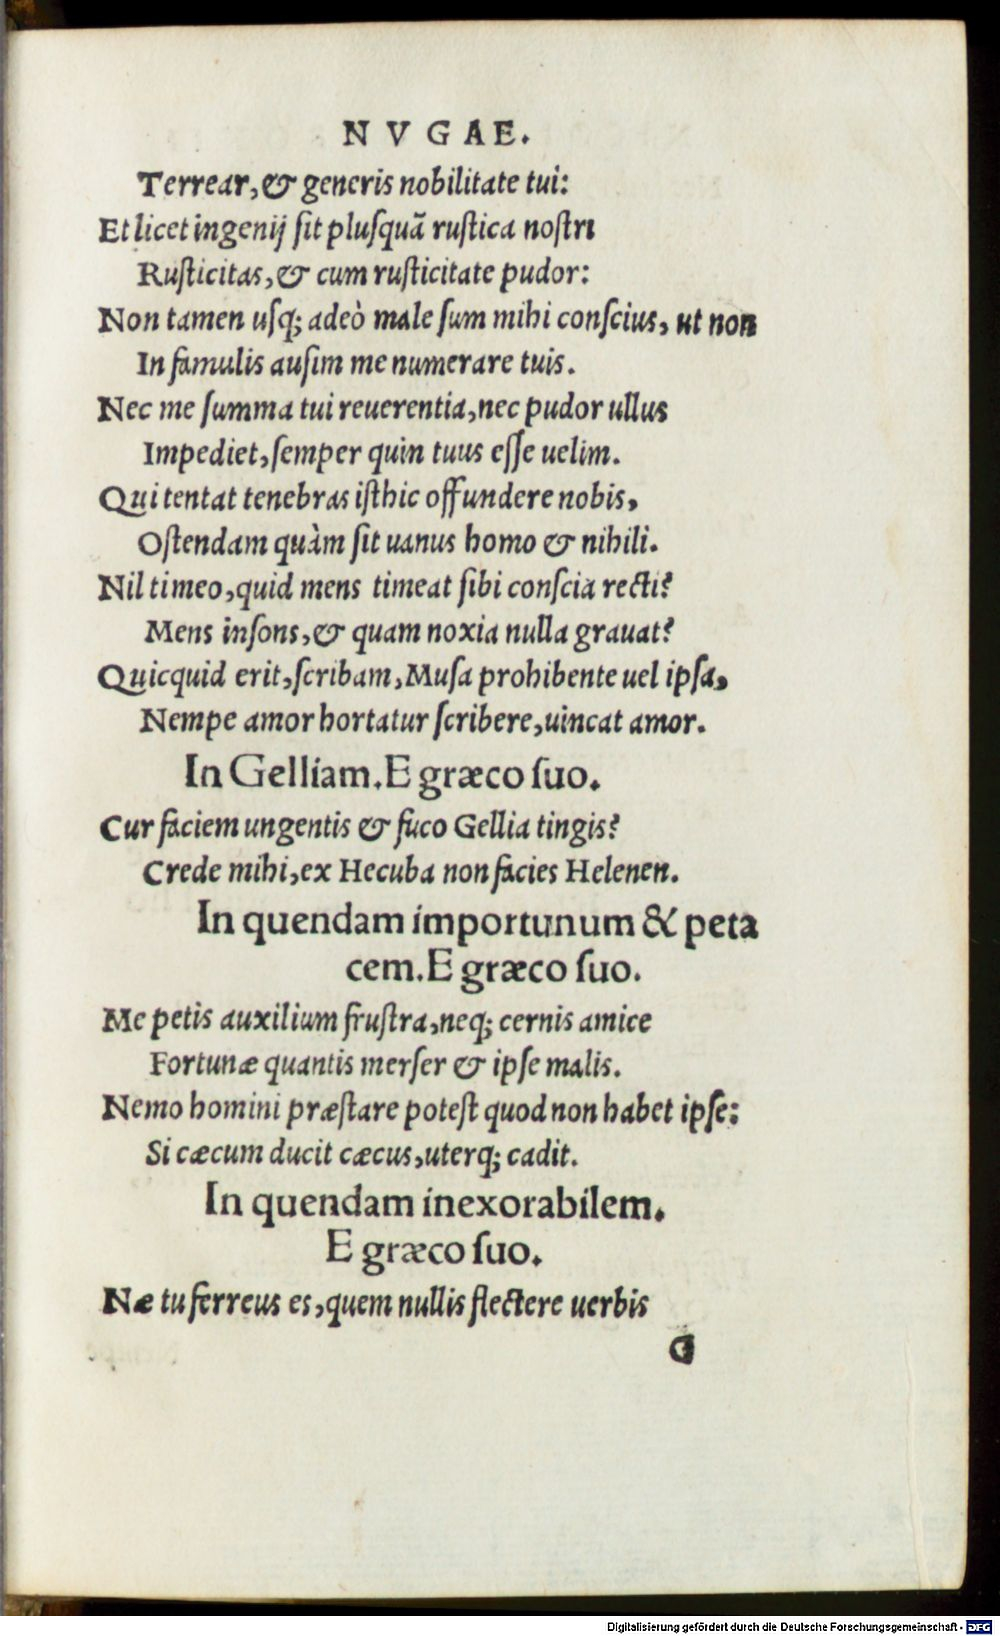 NVGAE.
Terrear, & generis nobilitate tui:
Et licet ingenij sit plusquã rustica nostri
Rusticitas, & cum rusticitate pudor:
Non tamen usq; adeò male sum mihi conscius, ut non
In famulis ausim me numerare tuis.
Nec me summa tui reuerentia, nec pudor ullus
Impediet, semper quin tuus esse uelim.
Qui tentat tenebras isthic offundere nobis,
Ostendam quàm sit uanus homo & nihili.
Nil timeo, quid mens timeat sibi conscia recti?
Mens insons, & quam noxia nulla grauat?
Quicquid erit, scribam, Musa prohibente uel ipsa,
Nempe amor hortatur scribere, uincat amor.
In Gelliam. E græco suo.
Cur faciem ungentis & fuco Gellia tingis?
Crede mihi, ex Hecuba non facies Helenen.
In quendam importunum & peta
cem. E græco suo.
Me petis auxilium frustra, neq; cernis amice
Fortunæ quantis merser & ipse malis.
Nemo homini præstare potest quod non habet ipse:
Si cæcum ducit cæcus, uterq; cadit.
In quendam inexorabilem.
E græco suo.
Næ tu ferreus es, quem nullis flectere uerbis
G
Digitalisierung gefördert durch die Deutsche Forschungsgemeinschaft - DFG